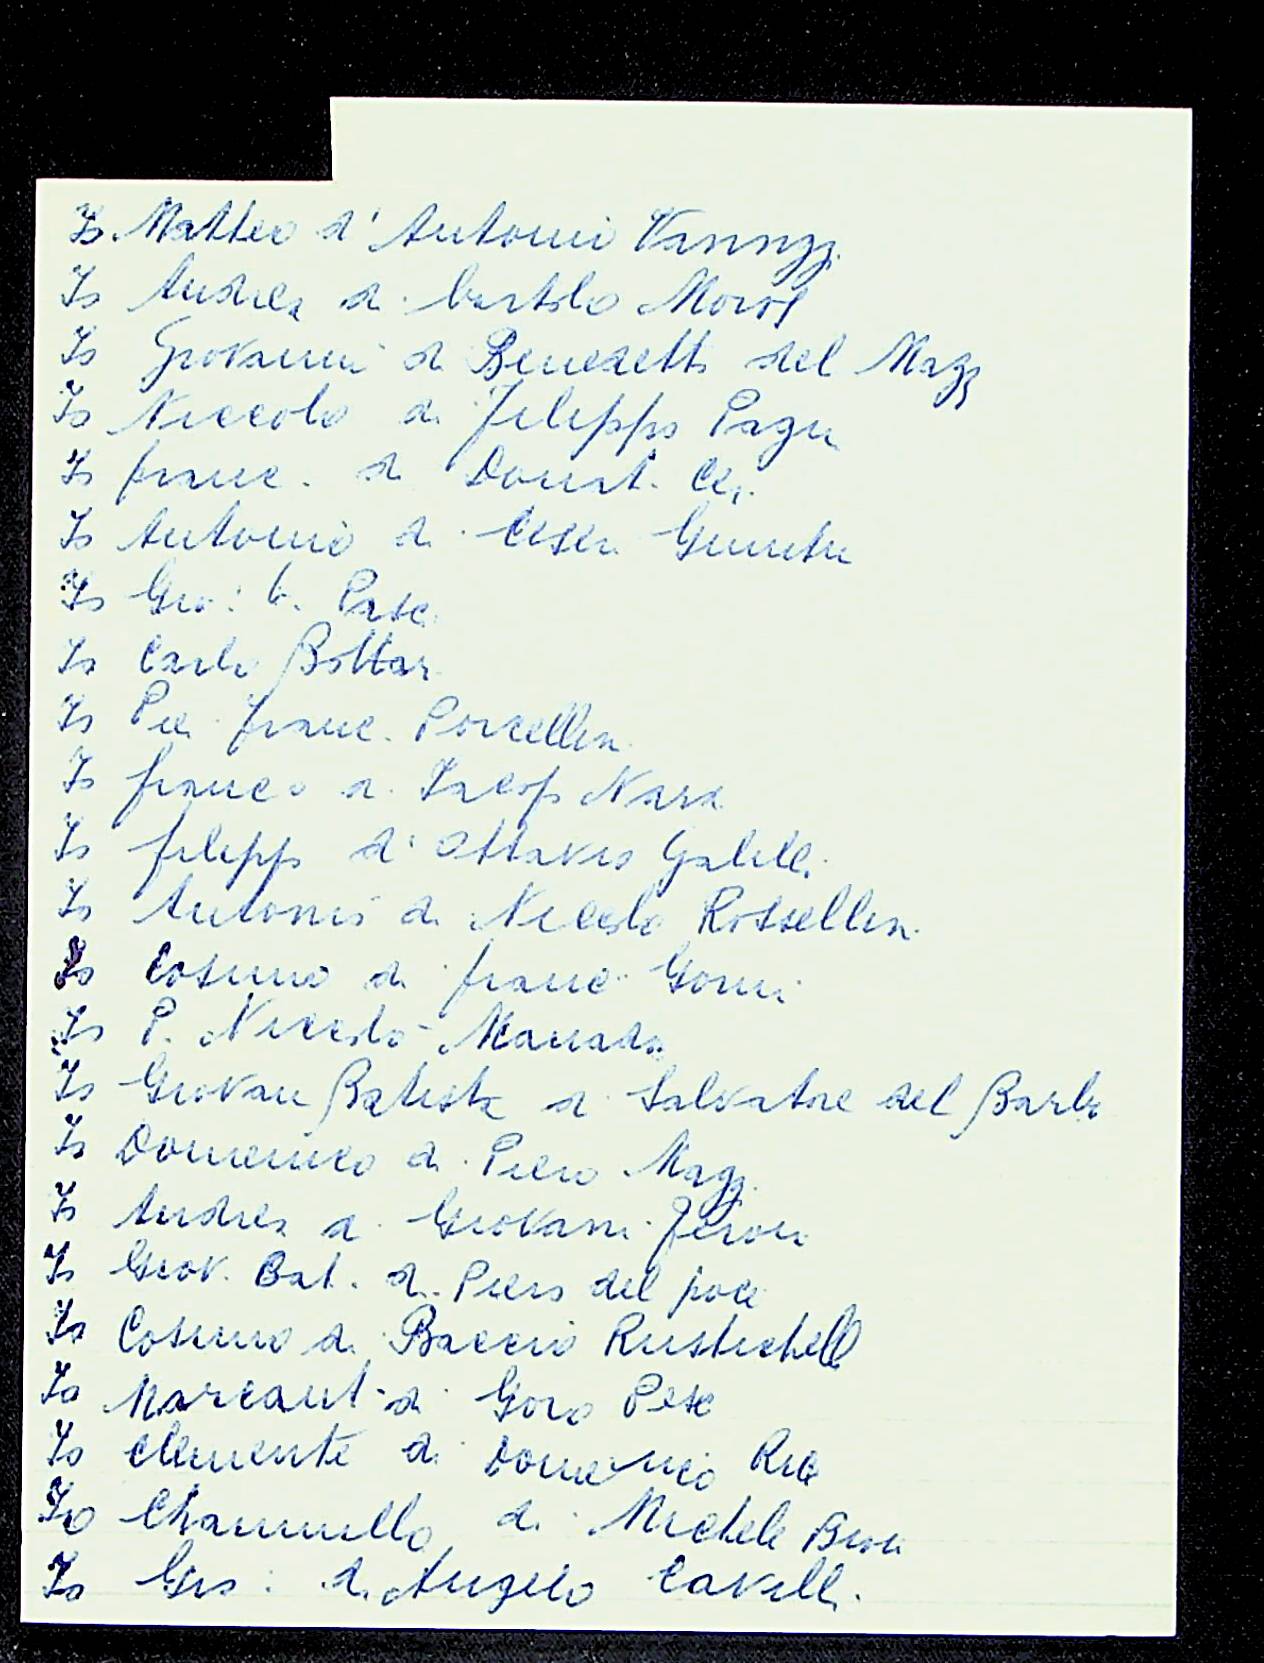 Io Matteo d'Antonio Vannozzi
Io Andrea di bartolo Moros
Io Giovanni di Benedetto del Mazz
Io Niccolo di Filippo Pagni
Io franc. di Donat.
Io Antonio di Cesen Giuntin
Io Gio: b. Pasc
Io Carlo Bottar
Io Pier franc. Porcellin
Io franco di Jacop Nard
Io filipp d'Ottavio Galile.
Io Antonio di Niccolo Rossellin
Io Cosimo di franc. Gonni
Io P. Niccolo Mannado
Io Giovan Batista di Salvatore del Barb
Io Domenico di Piero Magg.
Io Andrea di Giovani feroni
Io Giov. Bat. di Piero del poce
Io Cosimo di Baccio Rustichell
Io Marcant. di Goro Pesc
Io Clemente di Domenico Ric
Io Chiamello di Michele
Io Gio: di Angelo Cavall.